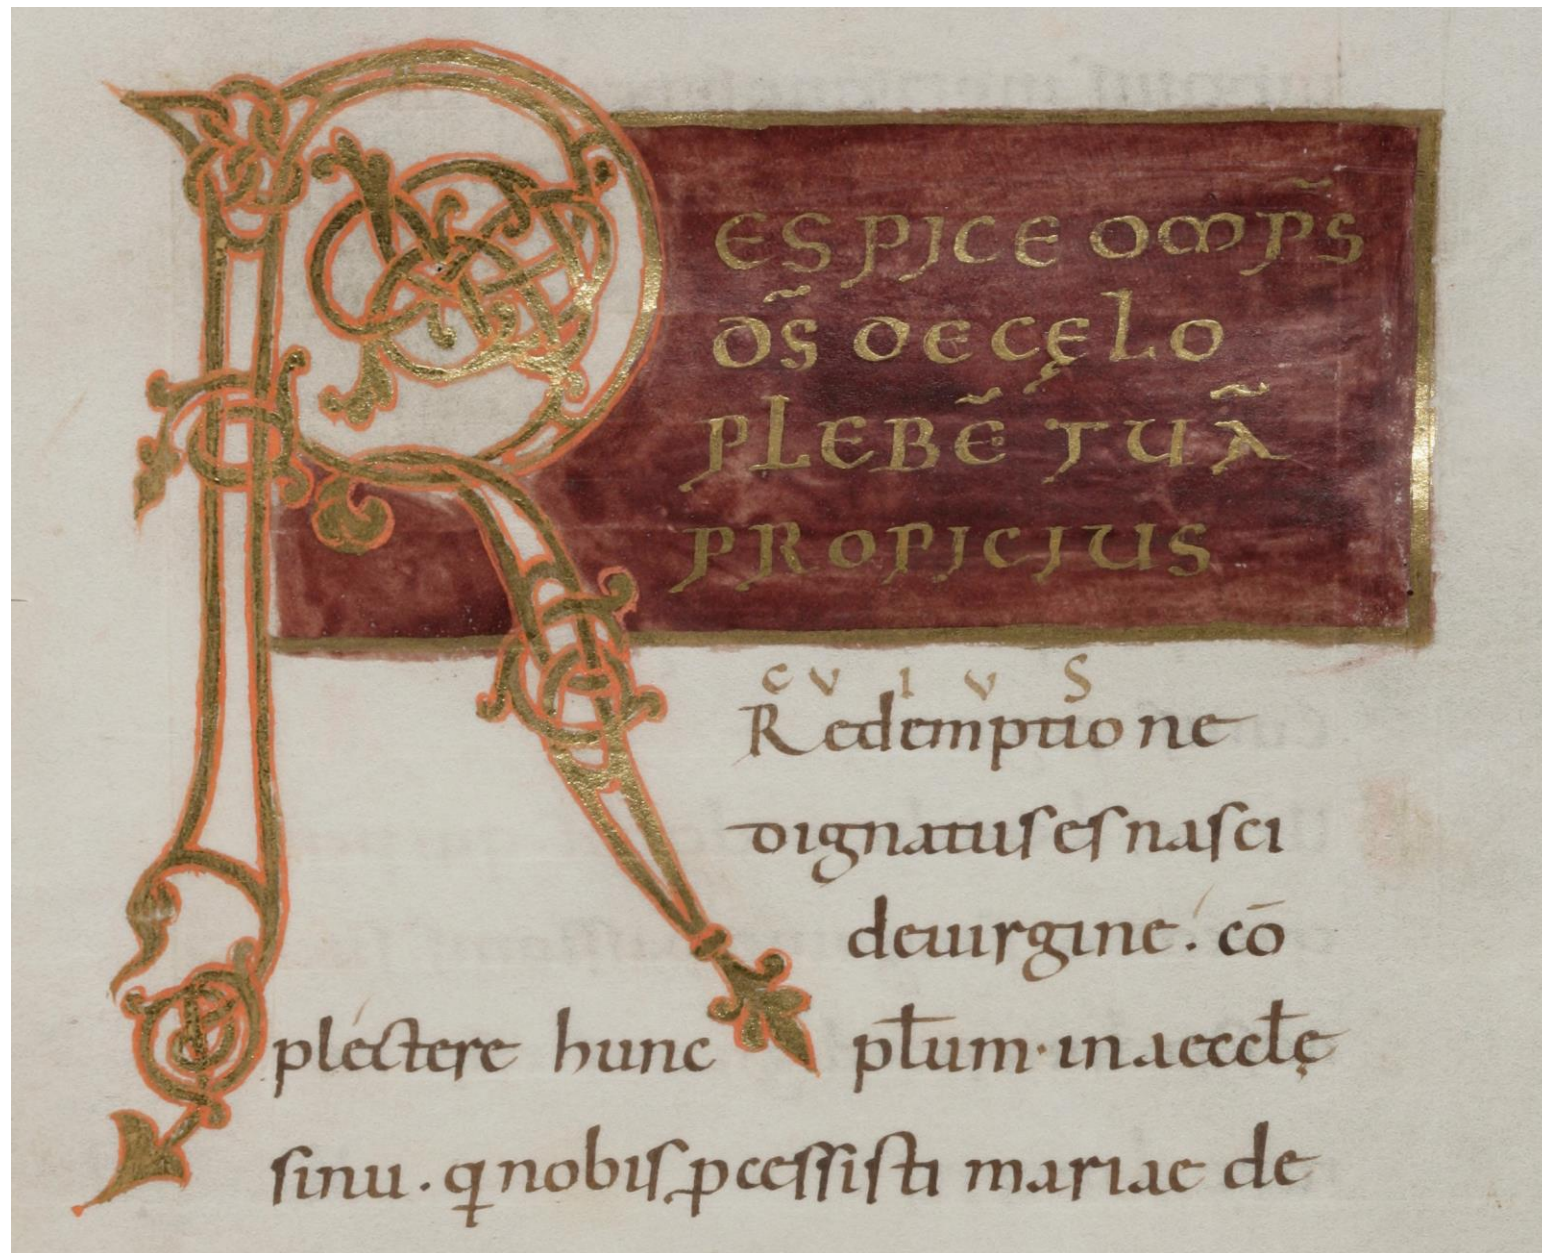 RESPICE OMP̃S
D̃S DE CĘLO
PLEBẼ TUÃ
PROPICIUS
CVIVS
Redemptione
dignatus es nasci
de uirgine. cō
plectere hunc pl̄um· in aeccl̄ę
sinu. q nobis ꝓcessisti mariae de